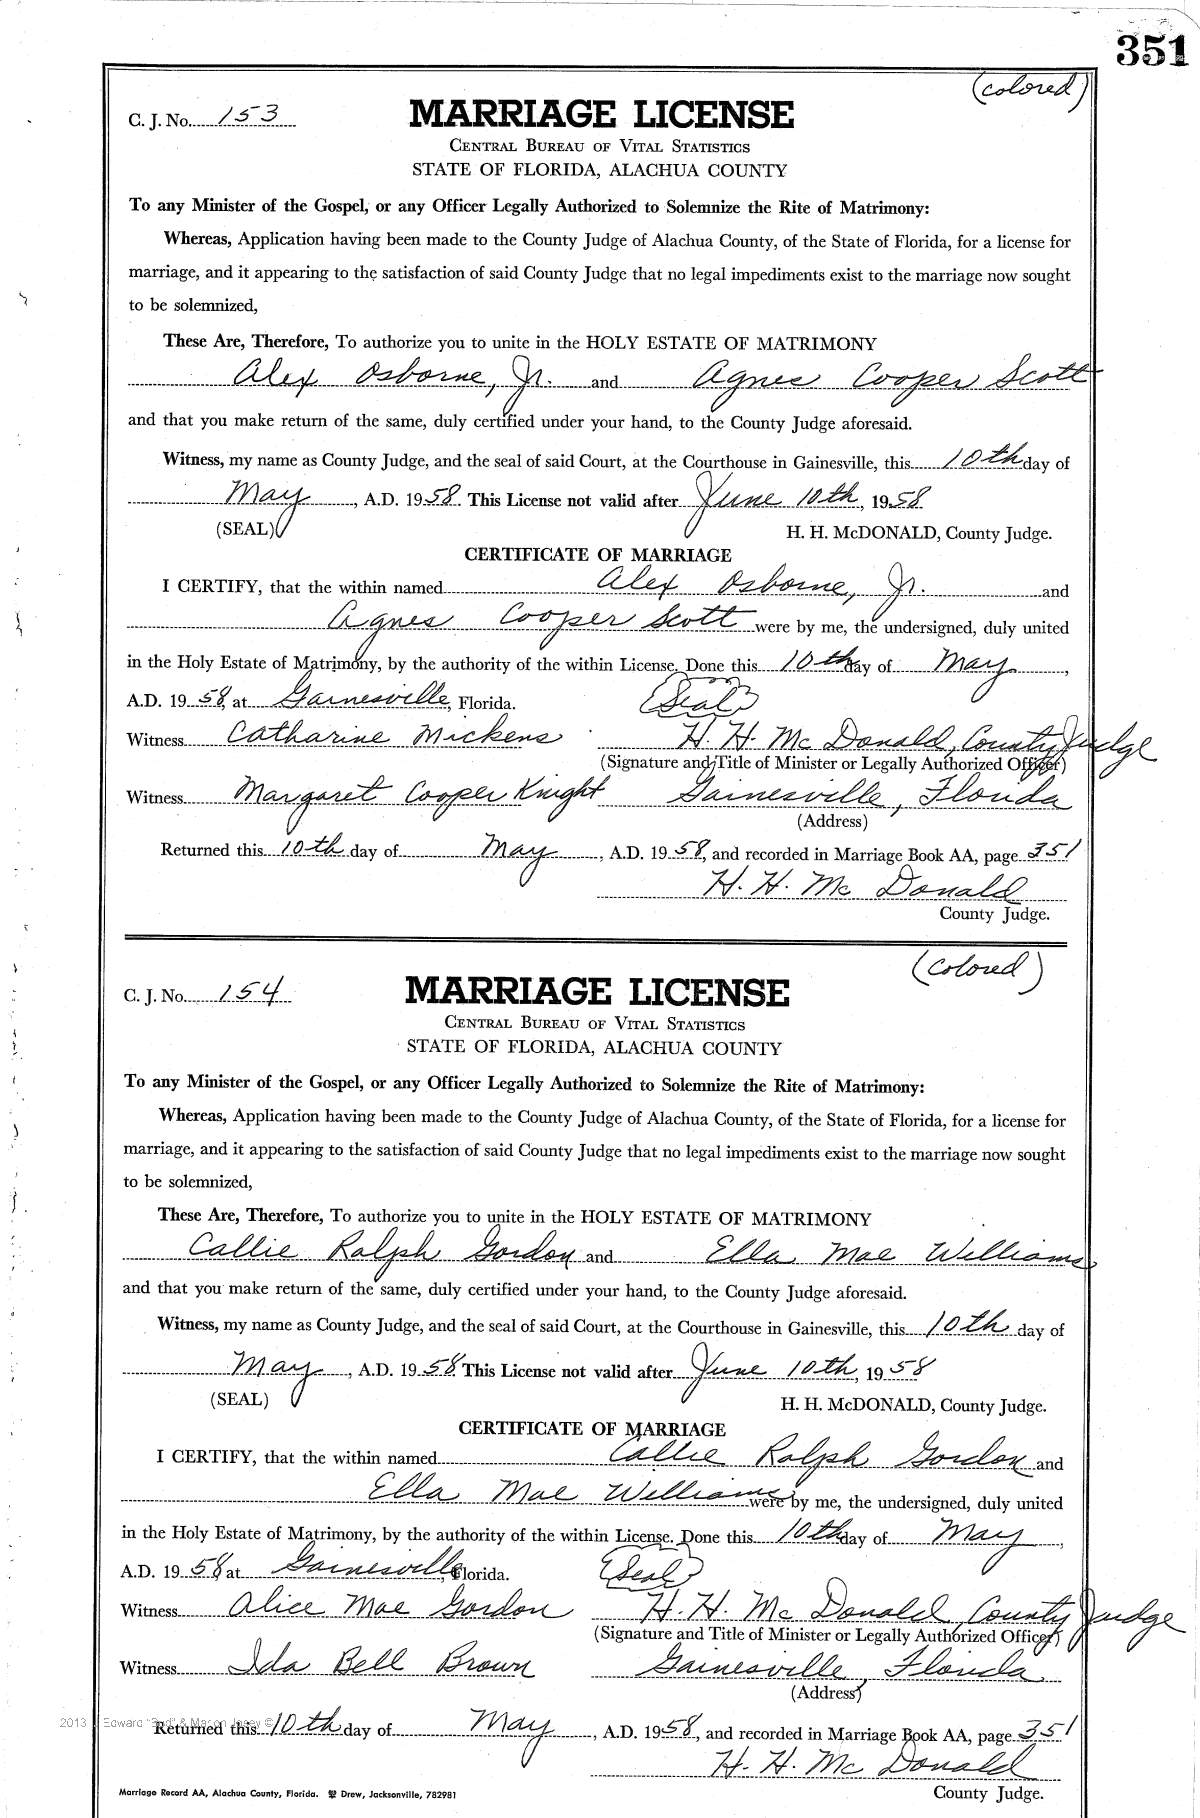 351
(colored)
C. J. No. 153
MARRIAGE LICENSE
CENTRAL BUREAU OF VITAL STATISTICS
STATE OF FLORIDA, ALACHUA COUNTY
To any Minister of the Gospel, or any Officer Legally Authorized to Solemnize the Rite of Matrimony:
Whereas, Application having been made to the County Judge of Alachua County, of the State of Florida, for a license for
marriage, and it appearing to the satisfaction of said County Judge that no legal impediments exist to the marriage now sought
to be solemnized,
These Are, Therefore, To authorize you to unite in the HOLY ESTATE OF MATRIMONY
Alex Osborne, Jr. and Agnes Cooper Scott
and that you make return of the same, duly certified under your hand, to the County Judge aforesaid.
Witness, my name as County Judge, and the seal of said Court, at the Courthouse in Gainesville, this 10th day of
May, A.D. 1958. This License not valid after June 10th, 1958
(SEAL) H. H. McDONALD, County Judge.
CERTIFICATE OF MARRIAGE
I CERTIFY, that the within named Alex Osborne, Jr. and
Agnes Cooper Scott were by me, the undersigned, duly united
in the Holy Estate of Matrimony, by the authority of the within License. Done this 10th day of May,
A.D. 1958, at Gainesville, Florida. (Seal)
Witness Catharine Mickens H. H. McDonald, County Judge
(Signature and Title of Minister or Legally Authorized Officer)
Witness Margaret Cooper Knight Gainesville, Florida
(Address)
Returned this 10th day of May, A.D. 1958, and recorded in Marriage Book AA, page 351
H. H. McDonald
County Judge.
(colored)
C. J. No. 154
MARRIAGE LICENSE
CENTRAL BUREAU OF VITAL STATISTICS
STATE OF FLORIDA, ALACHUA COUNTY
To any Minister of the Gospel, or any Officer Legally Authorized to Solemnize the Rite of Matrimony:
Whereas, Application having been made to the County Judge of Alachua County, of the State of Florida, for a license for
marriage, and it appearing to the satisfaction of said County Judge that no legal impediments exist to the marriage now sought
to be solemnized,
These Are, Therefore, To authorize you to unite in the HOLY ESTATE OF MATRIMONY
Callie Ralph Gordon and Ella Mae Williams
and that you make return of the same, duly certified under your hand, to the County Judge aforesaid.
Witness, my name as County Judge, and the seal of said Court, at the Courthouse in Gainesville, this 10th day of
May, A.D. 1958. This License not valid after June 10th, 1958
(SEAL) H. H. McDONALD, County Judge.
CERTIFICATE OF MARRIAGE
I CERTIFY, that the within named Callie Ralph Gordon and
Ella Mae Williams were by me, the undersigned, duly united
in the Holy Estate of Matrimony, by the authority of the within License. Done this 10th day of May,
A.D. 1958 at Gainesville, Florida. (Seal)
Witness Alice Mae Gordon H. H. McDonald, County Judge
(Signature and Title of Minister or Legally Authorized Officer)
Witness Ida Bell Brown Gainesville, Florida
(Address)
2013 Edward "Bud" & Macon Josey ©
Returned this 10th day of May, A.D. 1958, and recorded in Marriage Book AA, page 351
H. H. McDonald
Marriage Record AA, Alachua County, Florida. Drew, Jacksonville, 782981 County Judge.